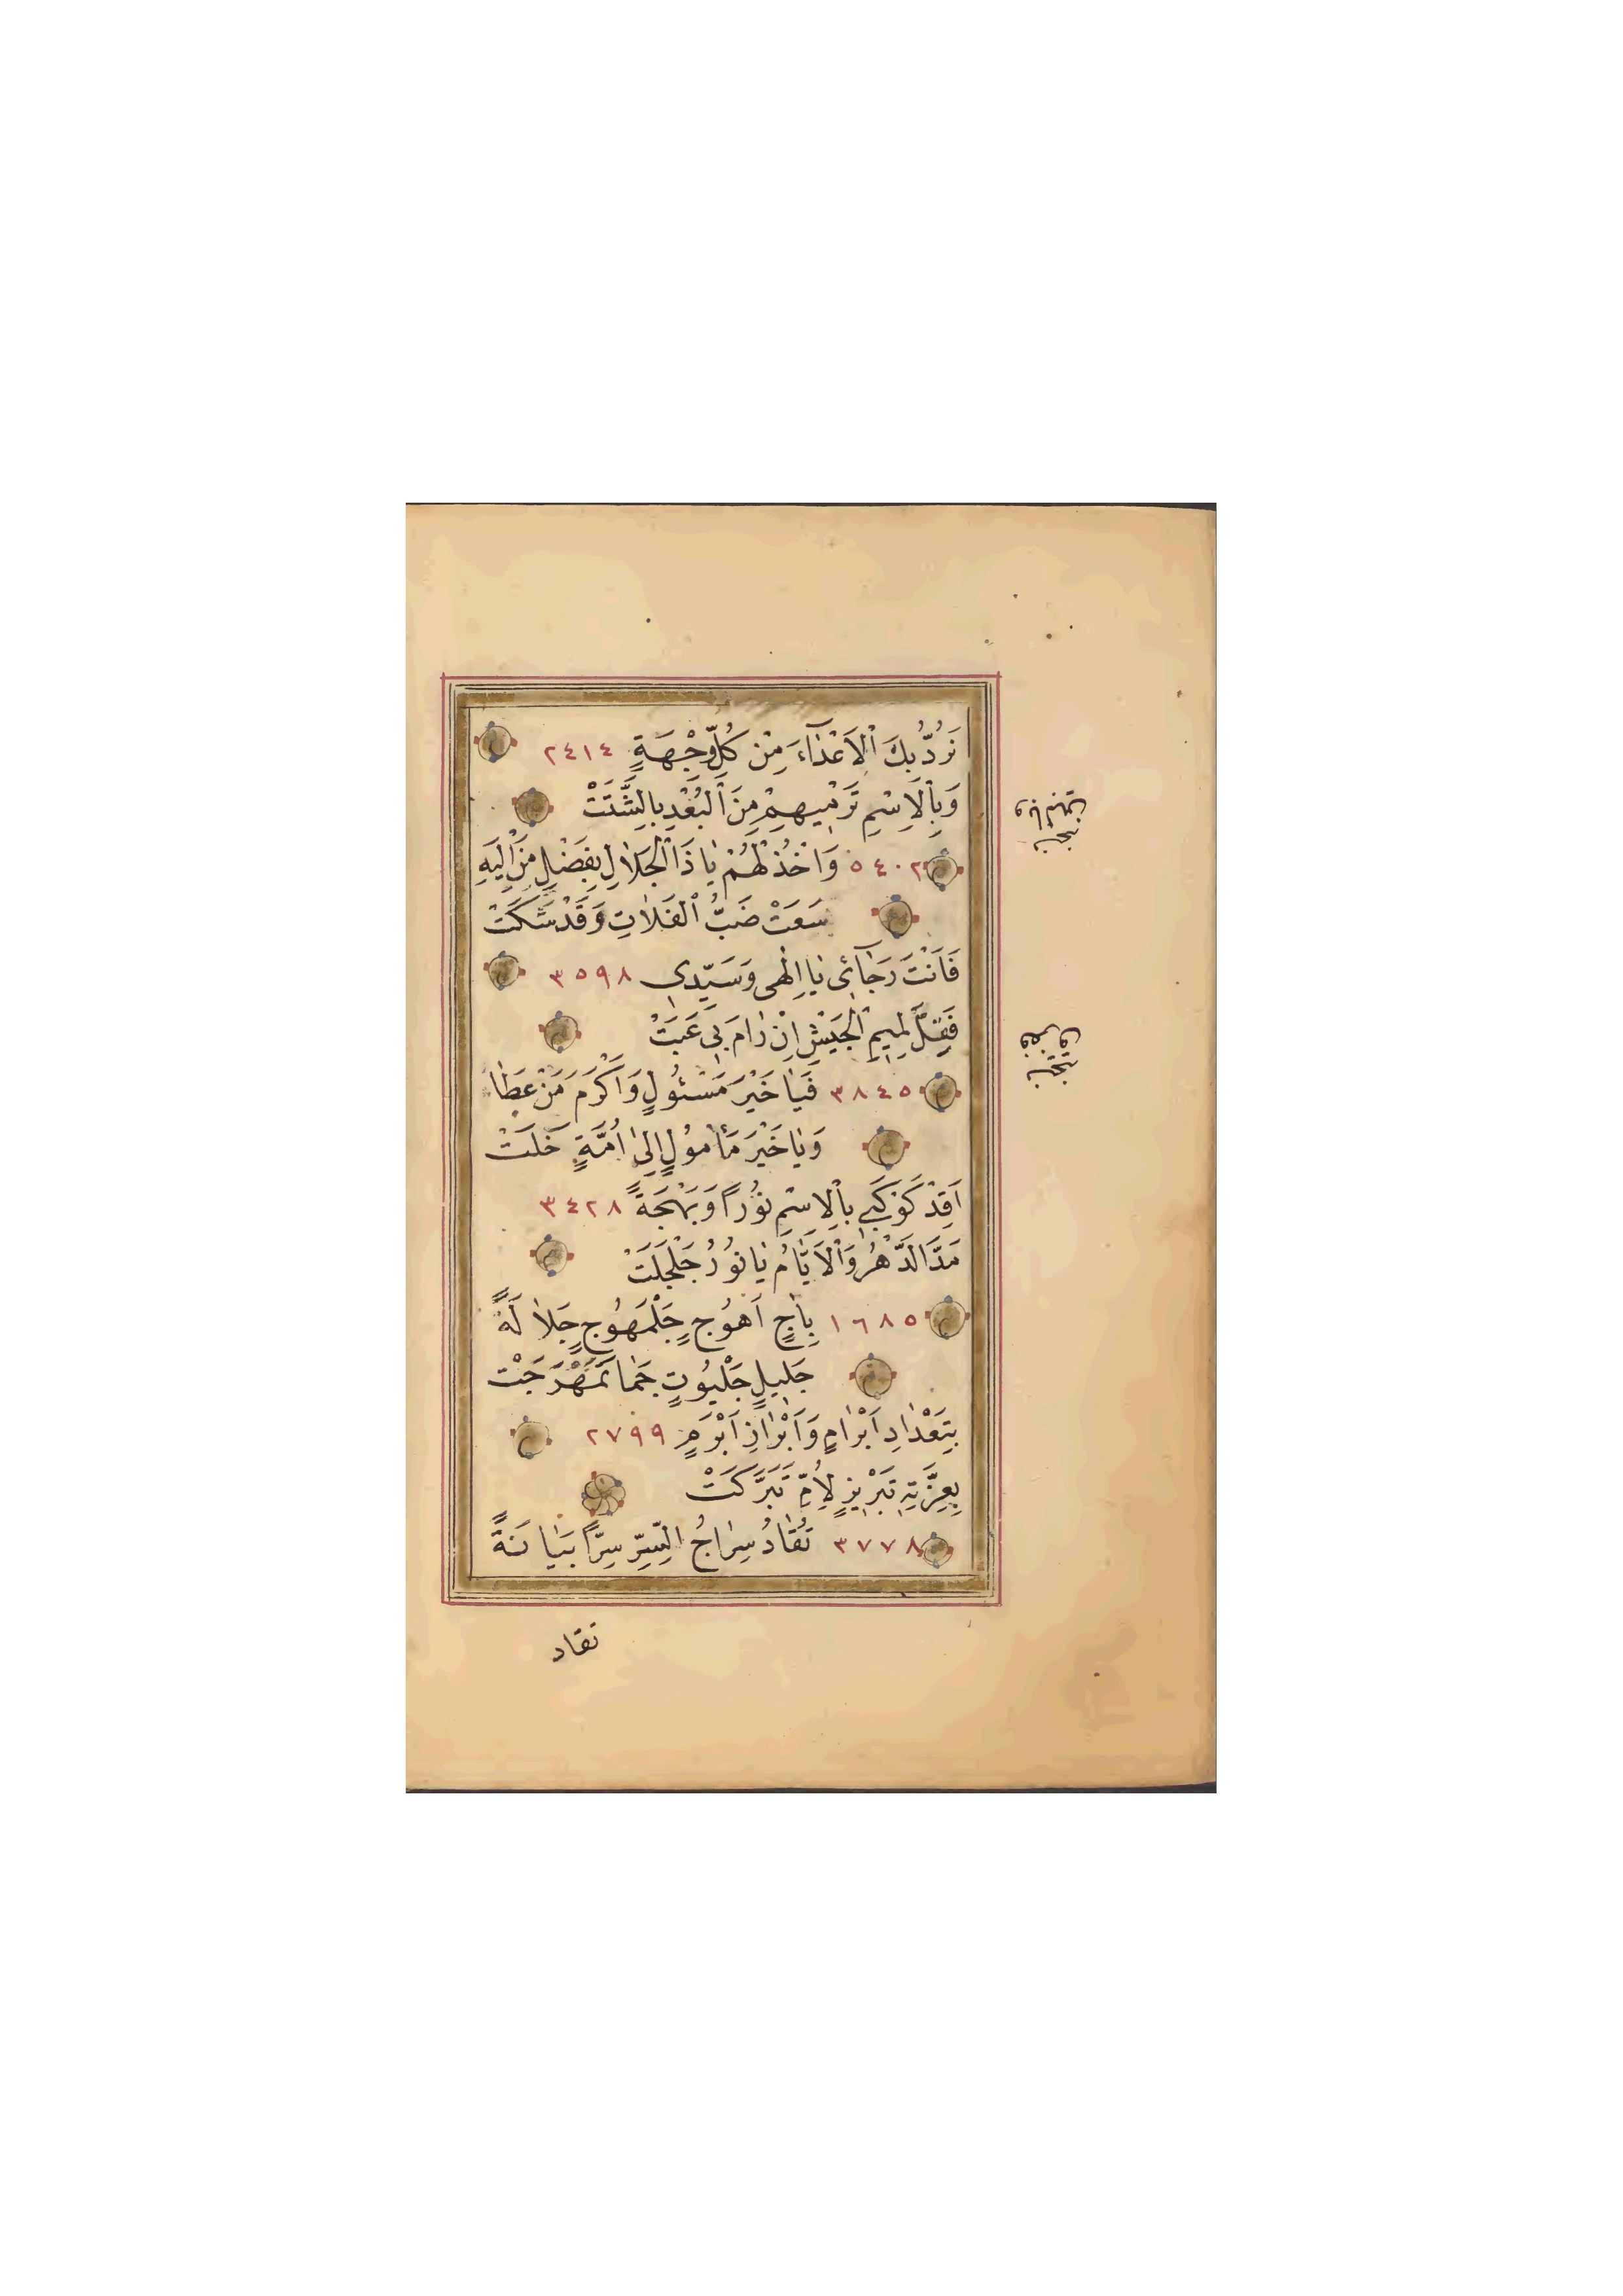 نَرُدُّ بِكَ الْاَعْدَآءَ مِنْ كُلِّ وِجْهَةٍ ٢٤١٤
وَبِالْاِسْمِ تَرْمِيهِمْ مِنَ الْبُعْدِ بِالشَّتَتْ
٥٤٠٢ وَاخْذُلْهُمْ يَا ذَا الْجَلَالِ بِفَضْلِ مَنْ اِلَيْهِ
سَعَتْ ضَبُّ الْفَلَاتِ وَقَدْ شَكَتْ
فَاَنْتَ رَجَآئِى يَا اِلٰهِى وَسَيِّدِى ٣٥٩٨
فَفِلَّ لَمِيمِ الْجَيْشِ اِنْ رَامَ بِى عَبَتْ
٣٨٤٥ فَيَا خَيْرَ مَسْئُولٍ وَاَكْرَمَ مَنْ عَطَا
وَيَا خَيْرَ مَأْمُولٍ اِلٰى اُمَّةٍ خَلَتْ
اَقِدْ كَوْكَبِى بِالْاِسْمِ نُورًا وَبَهْجَةً ٣٤٢٨
مَدَّ الدَّهْرُ وَالْاَيَّامُ يَا نُورُ جَلْجَلَتْ
١٦٨٥ بِاٰجٍ اَهُوجٍ جَلْمَهُوجٍ جَلَالَةً
جَلِيلٍ جَلْيُوتٍ جَمَا تَمَهْرَجَتْ
بِتَعْدَادِ اَبْرَامٍ وَاَبْرَازِ اَبْرَمٍ ٢٧٩٩
بِعِزَّتِهِ تَبْرِيزٍ لِاُمٍّ تَبَرَّكَتْ
٣٧٧٨ تُقَادُ سِرَاجُ السِّرِّ سِرًّا بَيَانَةً
تقاد